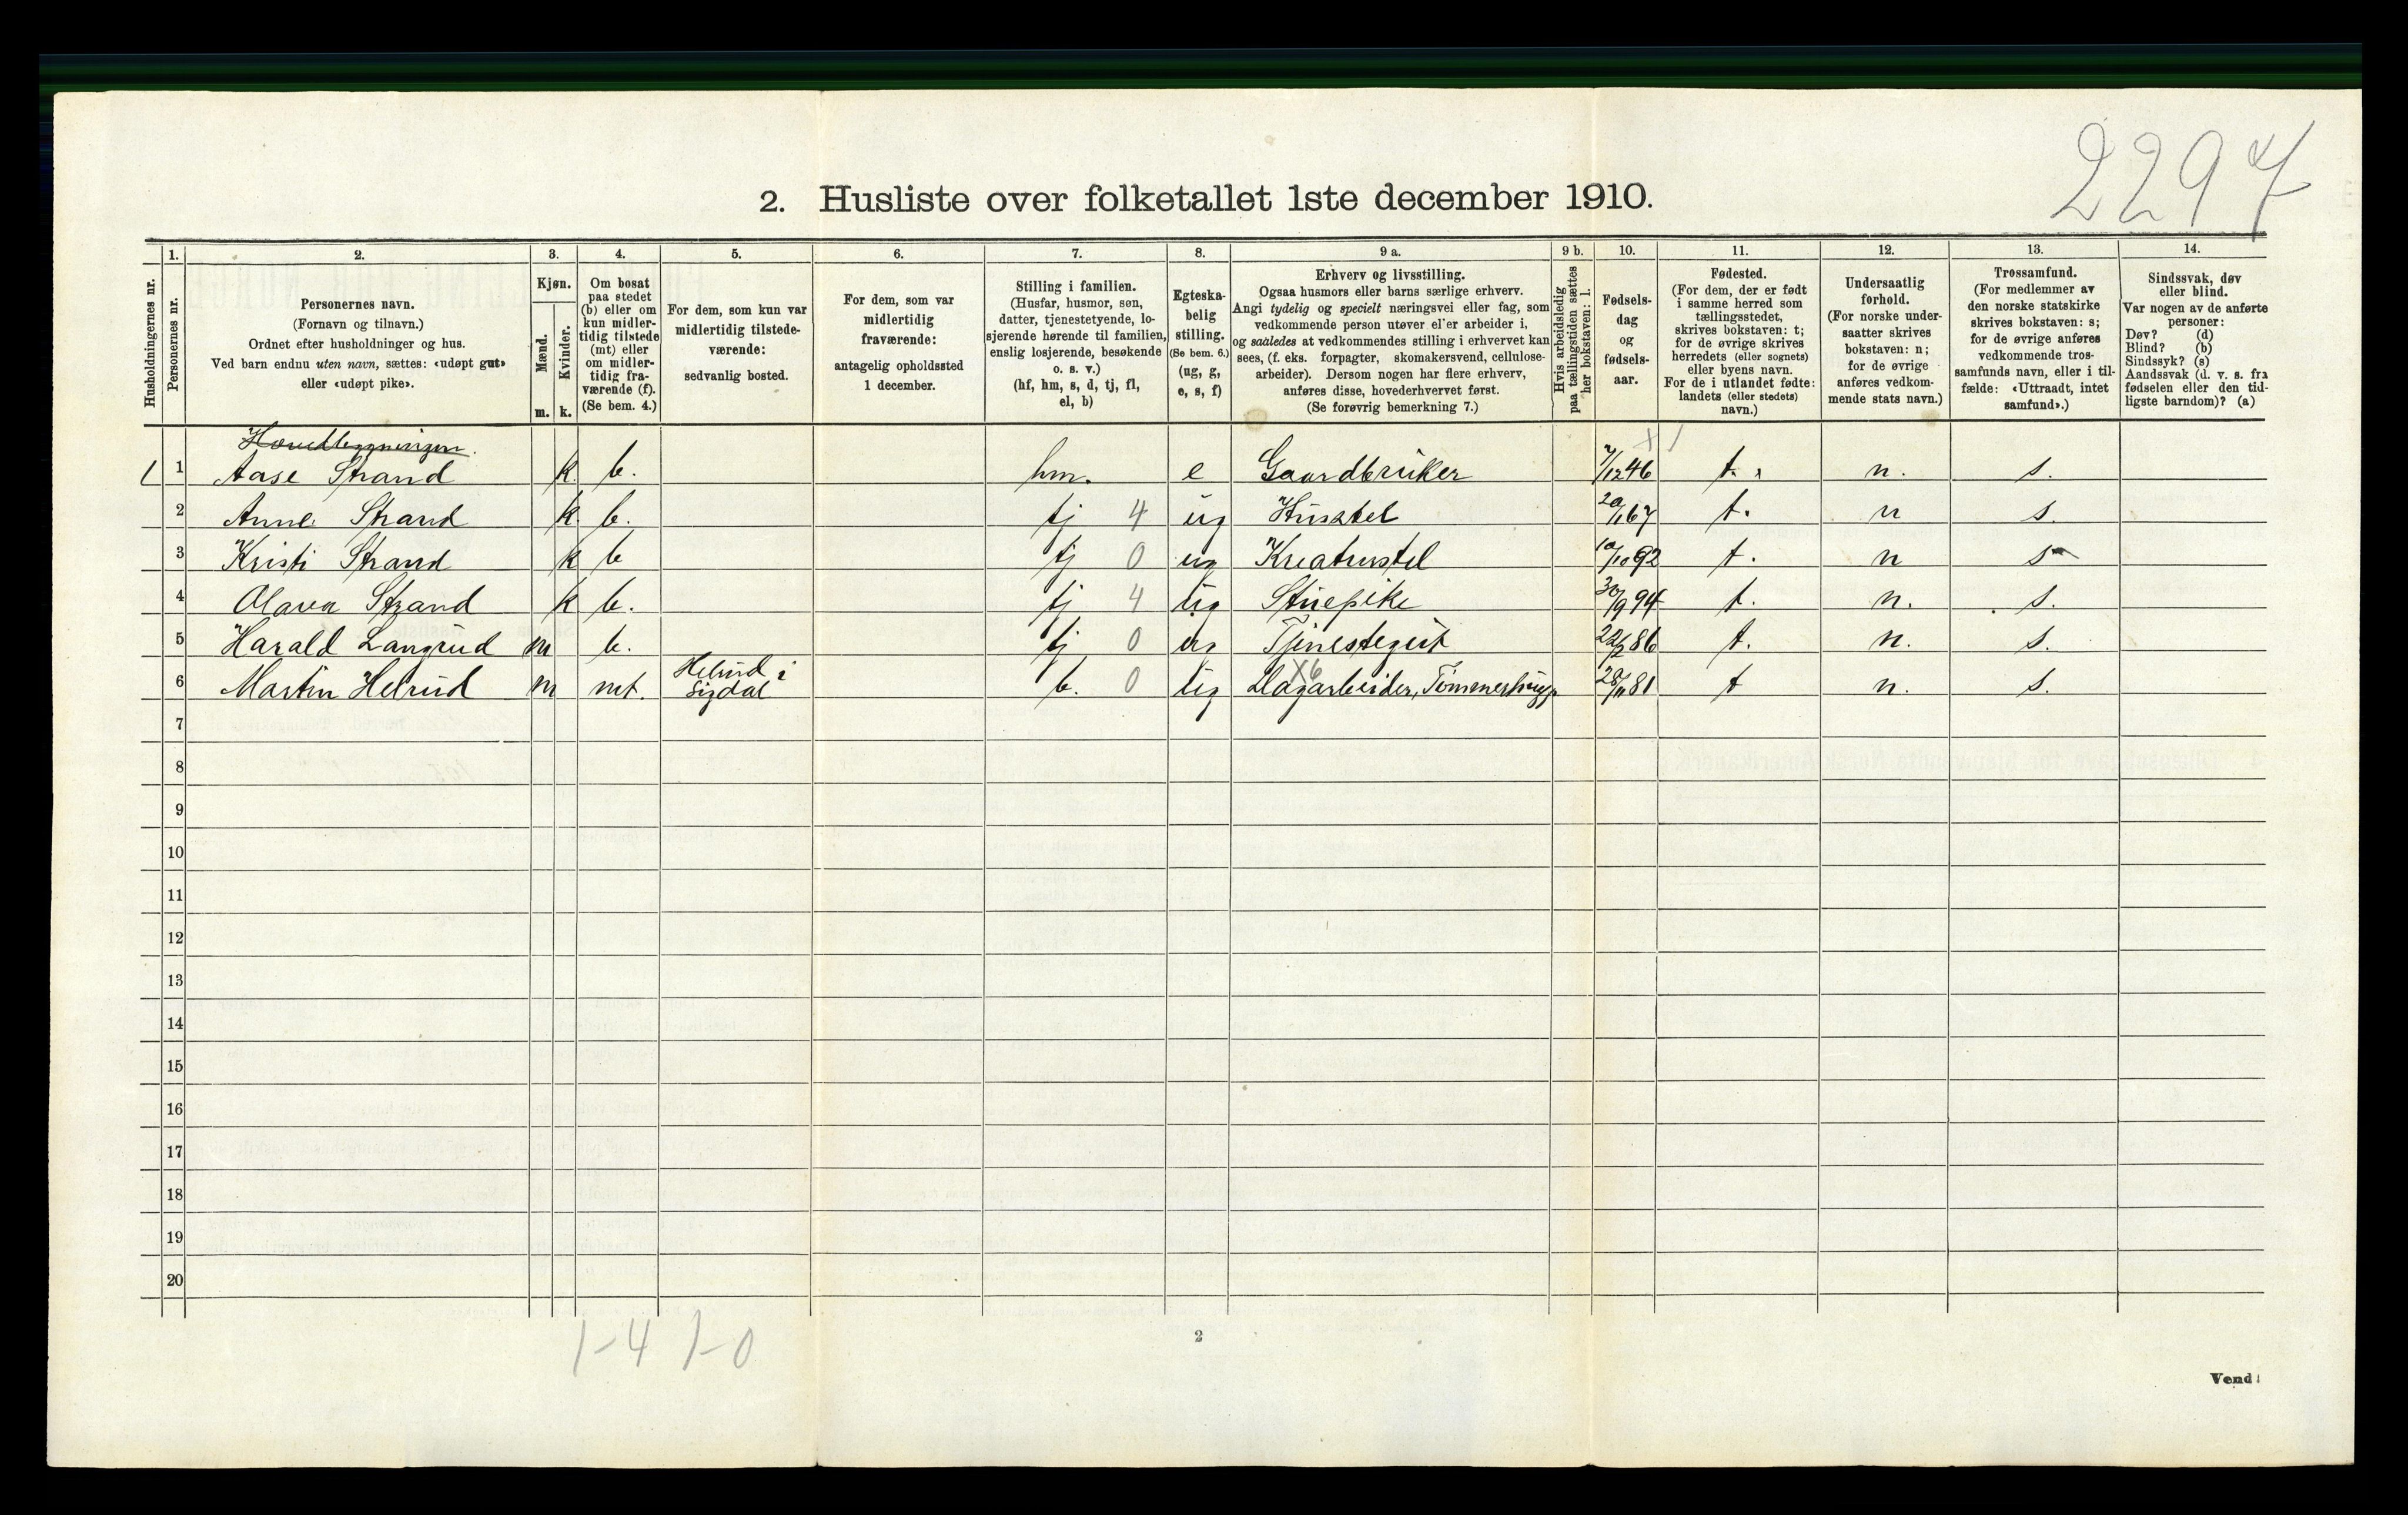 2294
2. Husliste over folketallet 1ste december 1910.
Husholdningernes nr.
1.
Personernes nr.
2.
Personernes navn.
(Fornavn og tilnavn.)
Ordnet efter husholdninger og hus.
Ved barn endnu uten navn, sættes: «udøpt gut»
eller «udøpt pike».
3.
Kjøn.
Mænd.
Kvinder.
m. k.
4.
Om bosat
paa stedet
(b) eller om
kun midler-
tidig tilstede
(mt) eller
om midler-
tidig fra-
værende (f).
(Se bem. 4.)
5.
For dem, som kun var
midlertidig tilstede-
værende:
sedvanlig bosted.
6.
For dem, som var
midlertidig
fraværende:
antagelig opholdssted
1 december.
7.
Stilling i familien.
(Husfar, husmor, søn,
datter, tjenestetyende, lo-
sjerende hørende til familien,
enslig losjerende, besøkende
o. s. v.)
(hf, hm, s, d, tj, fl,
el, b)
8.
Egteska-
belig
stilling.
(Se bem. 6.)
(ug, g,
e, s, f)
9 a.
Erhverv og livsstilling.
Ogsaa husmors eller barns særlige erhverv.
Angi tydelig og specielt næringsvei eller fag, som
vedkommende person utøver el'er arbeider i,
og saaledes at vedkommendes stilling i erhvervet kan
sees, (f. eks. forpagter, skomakersvend, cellulose-
arbeider). Dersom nogen har flere erhverv,
anføres disse, hovederhvervet først.
(Se forøvrig bemerkning 7.)
9 b.
Hvis arbeidsledig
paa tællingstiden sættes
her bokstaven: l.
10.
Fødsels-
dag
og
fødsels-
aar.
11.
Fødested.
(For dem, der er født
i samme herred som
tællingsstedet,
skrives bokstaven: t;
for de øvrige skrives
herredets (eller sognets)
eller byens navn.
For de i utlandet fødte:
landets (eller stedets)
navn.)
12.
Undersaatlig
forhold.
(For norske under-
saatter skrives
bokstaven: n;
for de øvrige
anføres vedkom-
mende stats navn.)
13.
Trossamfund.
(For medlemmer av
den norske statskirke
skrives bokstaven: s;
for de øvrige anføres
vedkommende tros-
samfunds navn, eller i til-
fælde: «Uttraadt, intet
samfund».)
14.
Sindssvak, døv
eller blind.
Var nogen av de anførte
personer:
Døv? (d)
Blind? (b)
Sindssyk? (s)
Aandssvak (d. v. s. fra
fødselen eller den tid-
ligste barndom)? (a)
Hovedbygningen.
1 1 Aase Strand k. b. hm. e Gaardbruker 7/12 46 t. n. s.
2 Anne Strand k. b. tj 4 ug Husstel 20/1 67 t. n s.
3 Kristi Strand k b tj 0 ug Kreaturstel 10/10 92 t. n s
4 Olava Strand k b. tj 4 ug Stuepike 30/9 94 t. n. s.
5 Harald Langrud m b. tj 0 ug Tjenestegut 22/2 86 t. n. s.
6 Martin Helrud m mt. Helrud i Sigdal b. 0 ug Dagarbeider, Tømmerhugg X6 28/11 81 t n. s.
7
8
9
10
11
12
13
14
15
16
17
18
19
20
1-4 1-0
2
Vend!